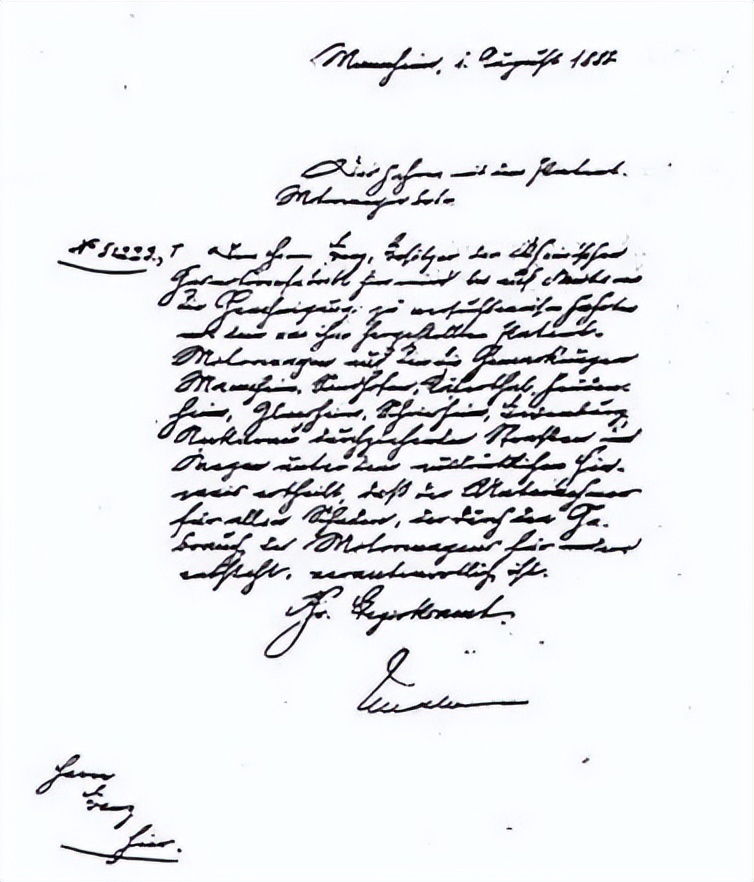 Mannheim, 1. August 1888
Das Fahren mit dem Patent-
Motorwagen betr.
No 51229, I Dem Herrn Benz, Besitzer der Rheinischen
Gasmotorenfabrik hier wird bis auf Weiteres
die Genehmigung zu versuchsweisen Fahrten
mit dem von ihm hergestellten Patent-
Motorwagen auf den die Gemarkungen
Mannheim, Sandhofen, Käferthal, Feuden-
heim, Ilvesheim, Schriesheim, Ladenburg,
Neckarau durchziehenden Straßen und
Wegen unter dem ausdrücklichen Hin-
weis ertheilt, daß der Unternehmer
für allen Schaden, der durch den Ge-
brauch des Motorwagens für andere
entsteht, verantwortlich ist.
Gr. Bezirksamt.
Herrn
Benz
hier.